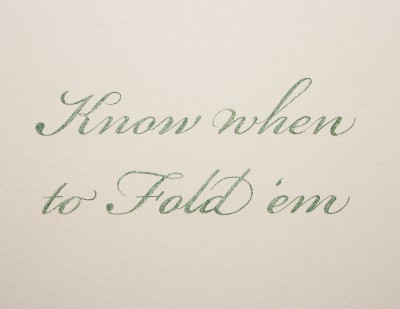 Know when
to Fold 'em